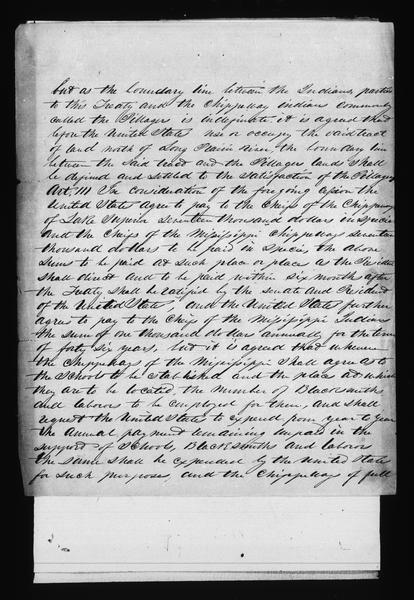 but as the boundary line between the Indians, parties
to this Treaty and the Chippeway indians commonly
called the Pillagers is indefinite it is agreed that
before the United States use or occupy the said tract
of land north of Long Prairie river the boundary line
between the Said tract and the Pillagers lands shall
be defined and settled to the Satisfaction of the Pillagers
Art. III In consideration of the foregoing cession the
United States agree to pay to the Chiefs of the Chippeways
of Lake Superior Seventeen thousand dollars in Specie
and the Chiefs of the Mississippi Chippeways Seventeen
thousand dollars to be paid in Specie, the above
Sums to be paid at such place or places as the President
shall direct and to be paid within six months after
the Treaty Shall be ratified by the Senate and President
of the United States and the United States further
agree to pay to the Chiefs of the Mississippi Indians
the sum of one thousand dollars annually for the term
of forty six years, but it is agreed that whenever
the Chippeways of the Mississippi Shall agree as to
the Schools to be Established and the place at which
they are to be located the number of Blacksmiths
and laborers to be employed for them, and shall
request the United States to expend from year to year
the annual payment remaining unpaid in the
support of Schools, Blacksmiths and laborers
the same shall be expended by the United States
for such purposes, and the Chippeways of full